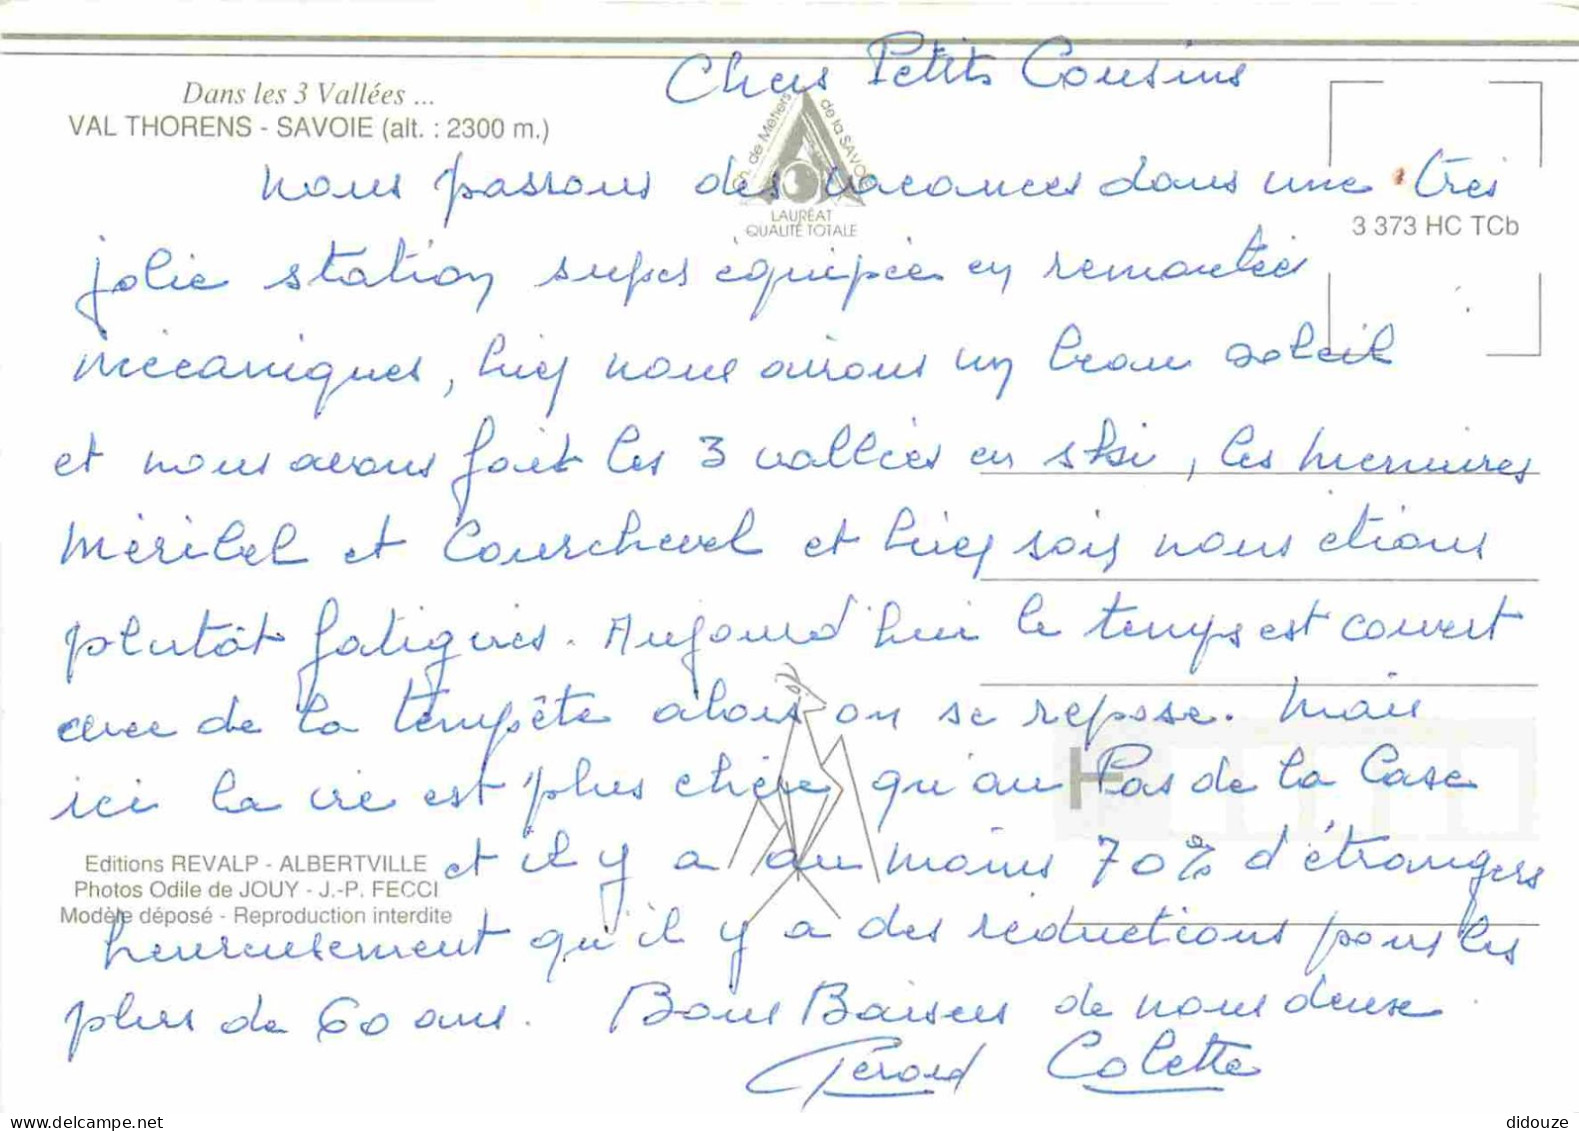 Chers Petits Cousins
Dans les 3 Vallées ...
VAL THORENS - SAVOIE (alt. : 2300 m.)
Ch. de Métiers de la SAVOIE
LAURÉAT
QUALITÉ TOTALE
3 373 HC TCb
nous passons des vacances dans une très
jolie station super équipée en remontées
mécaniques, hier nous avions un beau soleil
et nous avons fait les 3 vallées en ski, les menuires
Méribel et Courchevel et hier soir nous étions
plutôt fatigués. Aujourd'hui le temps est couvert
avec de la tempête alors on se repose. Mais
ici la vie est plus chère qu'au Pas de la Case
et il y a au moins 70% d'étrangers
Editions REVALP - ALBERTVILLE
Photos Odile de JOUY - J.-P. FECCI
Modèle déposé - Reproduction interdite
heureusement qu'il y a des réductions pour les
plus de 60 ans. Bons Baisers de nous deux
Gérard Colette
didouze